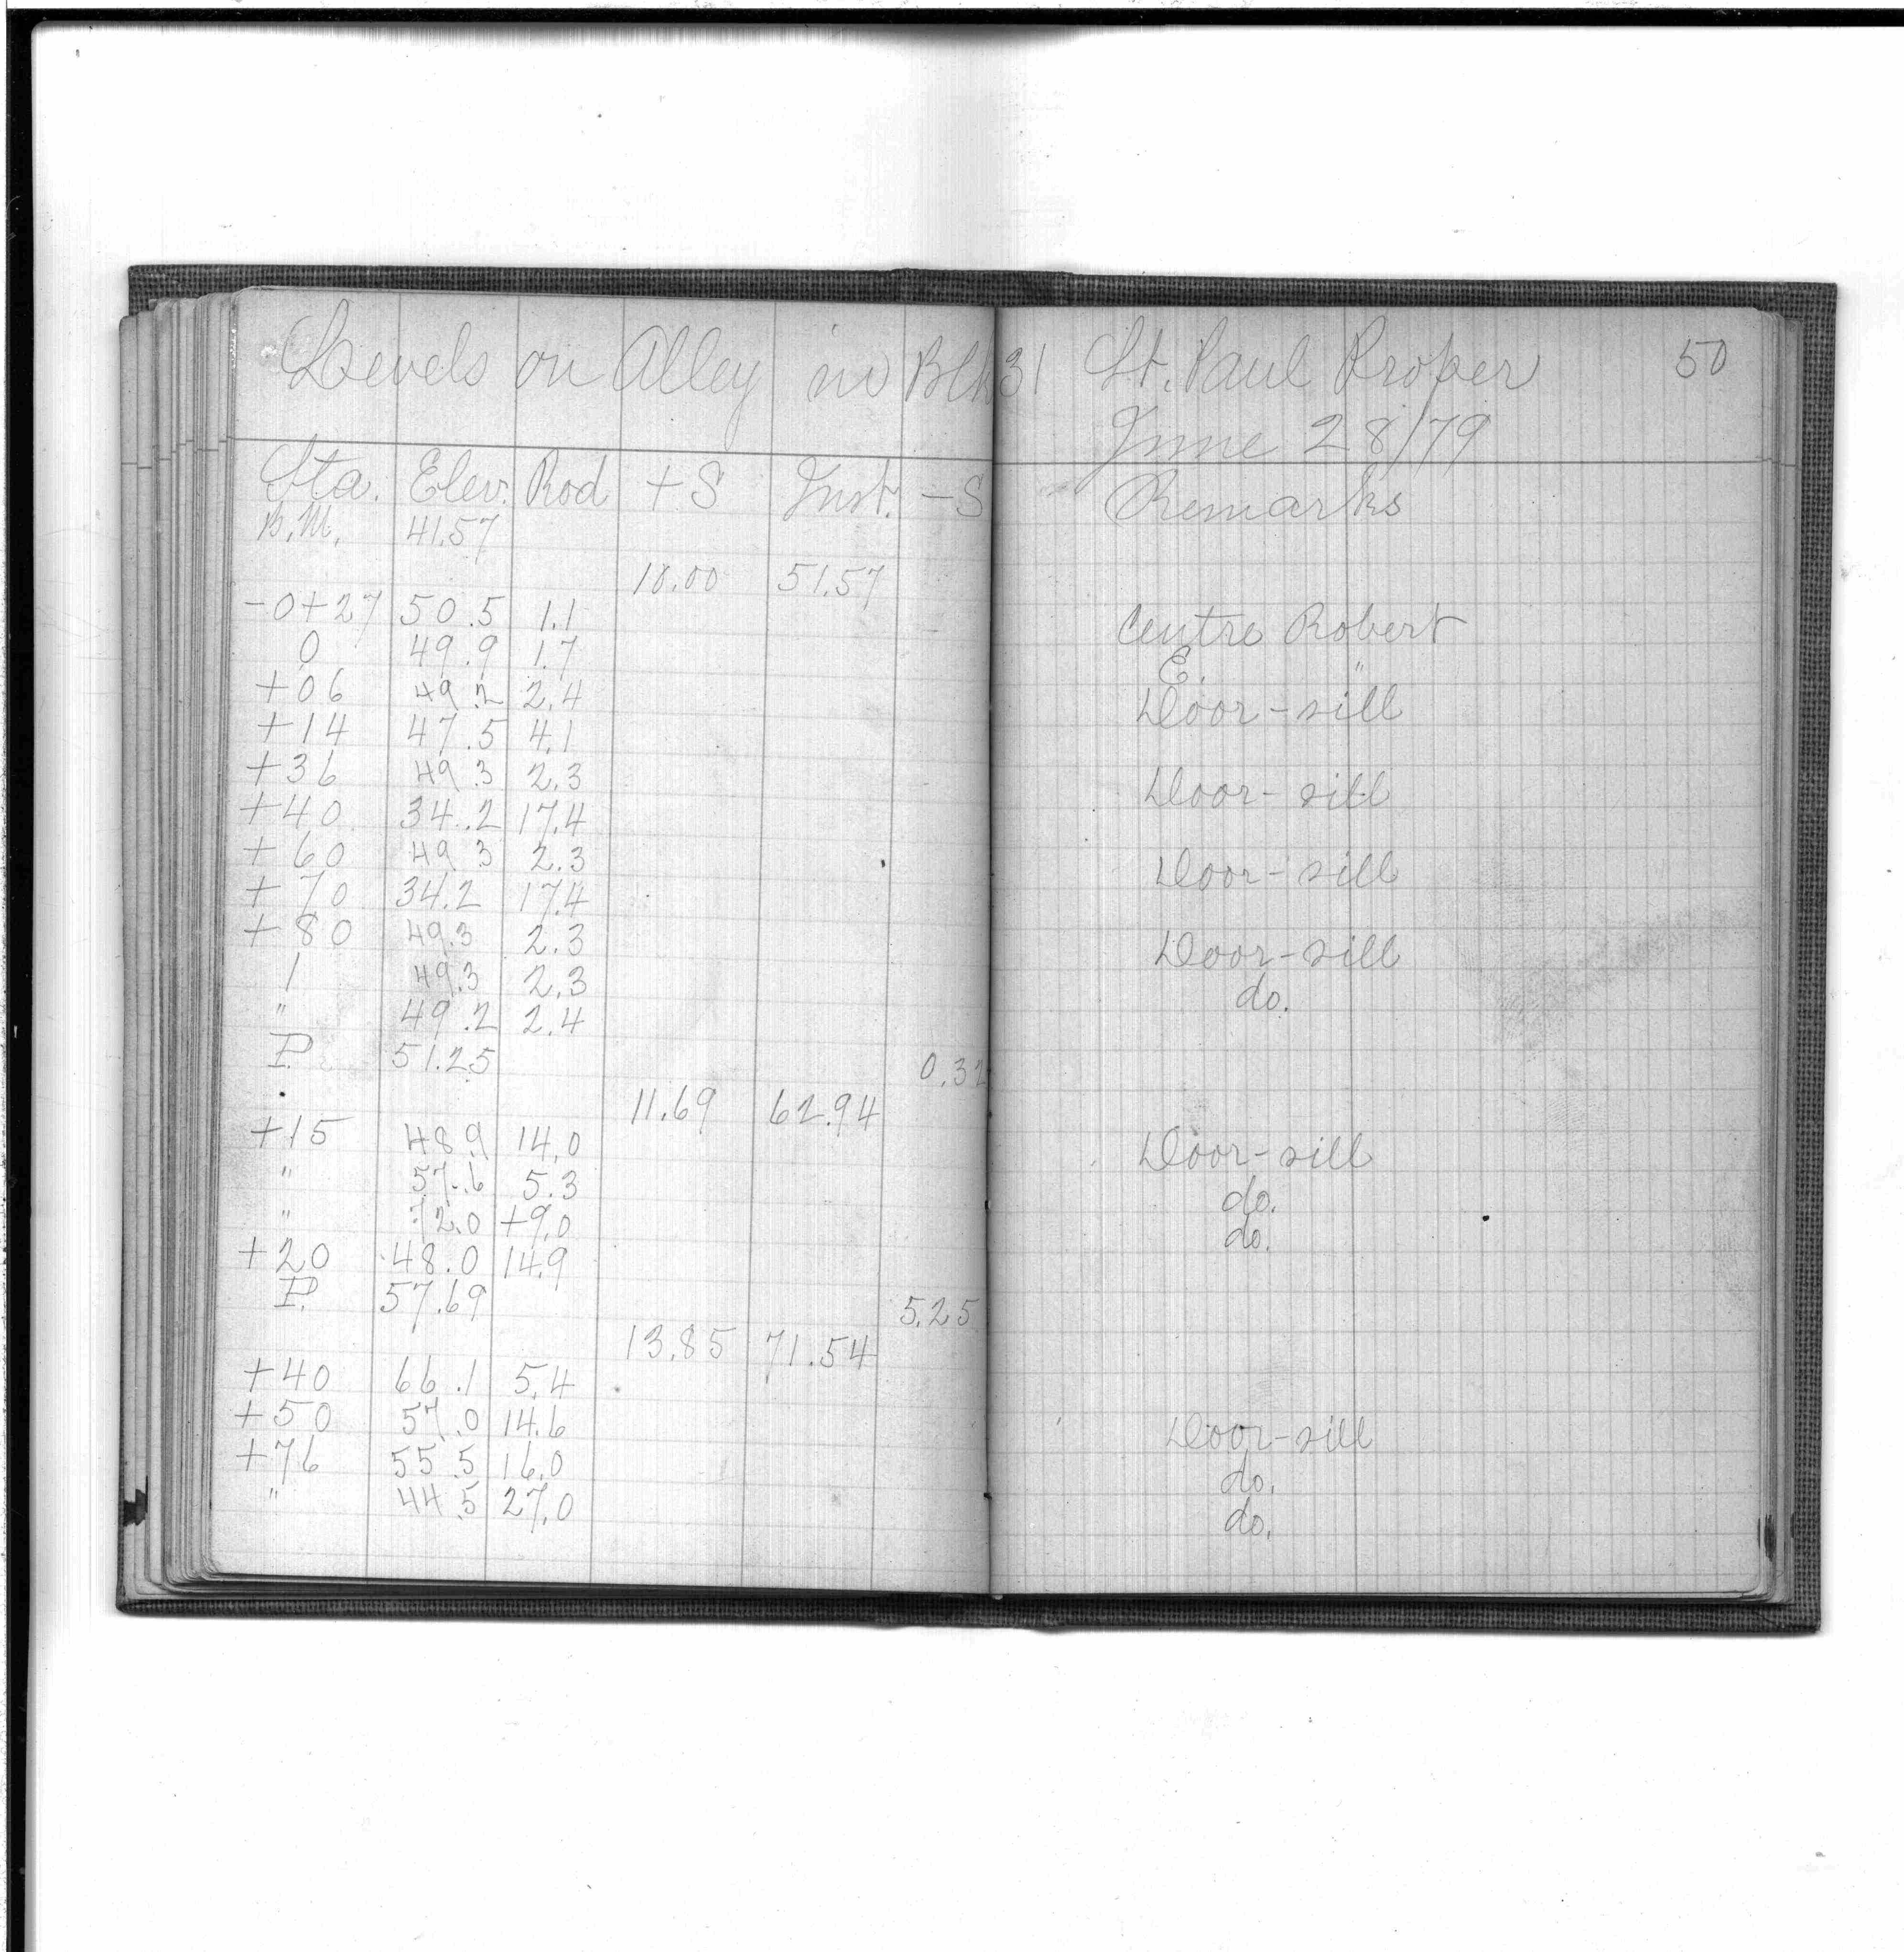 Levels on Alley in Blk 31 St. Paul Proper 50
June 28/79
Sta. Elev. Rod + S Inst. - S Remarks
B.M. 41.57
10.00 51.57
-0+27 50.5 1.1 Centre Robert
0 49.9 1.7 E. "
+06 49.2 2.4 Door-sill
+14 47.5 4.1
+36 49.3 2.3 Door-sill
+40 34.2 17.4
+60 49.3 2.3 Door-sill
+70 34.2 17.4
+80 49.3 2.3 Door-sill
1 49.3 2.3 do.
" 49.2 2.4
P. 51.25 0.32
11.69 62.94
+15 48.9 14.0 Door-sill
" 57.6 5.3 do.
" 72.0 +9.0 do.
+20 48.0 14.9
P. 57.69 5.25
13.85 71.54
+40 66.1 5.4
+50 57.0 14.6 Door-sill
+76 55.5 16.0 do.
" 44.5 27.0 do.